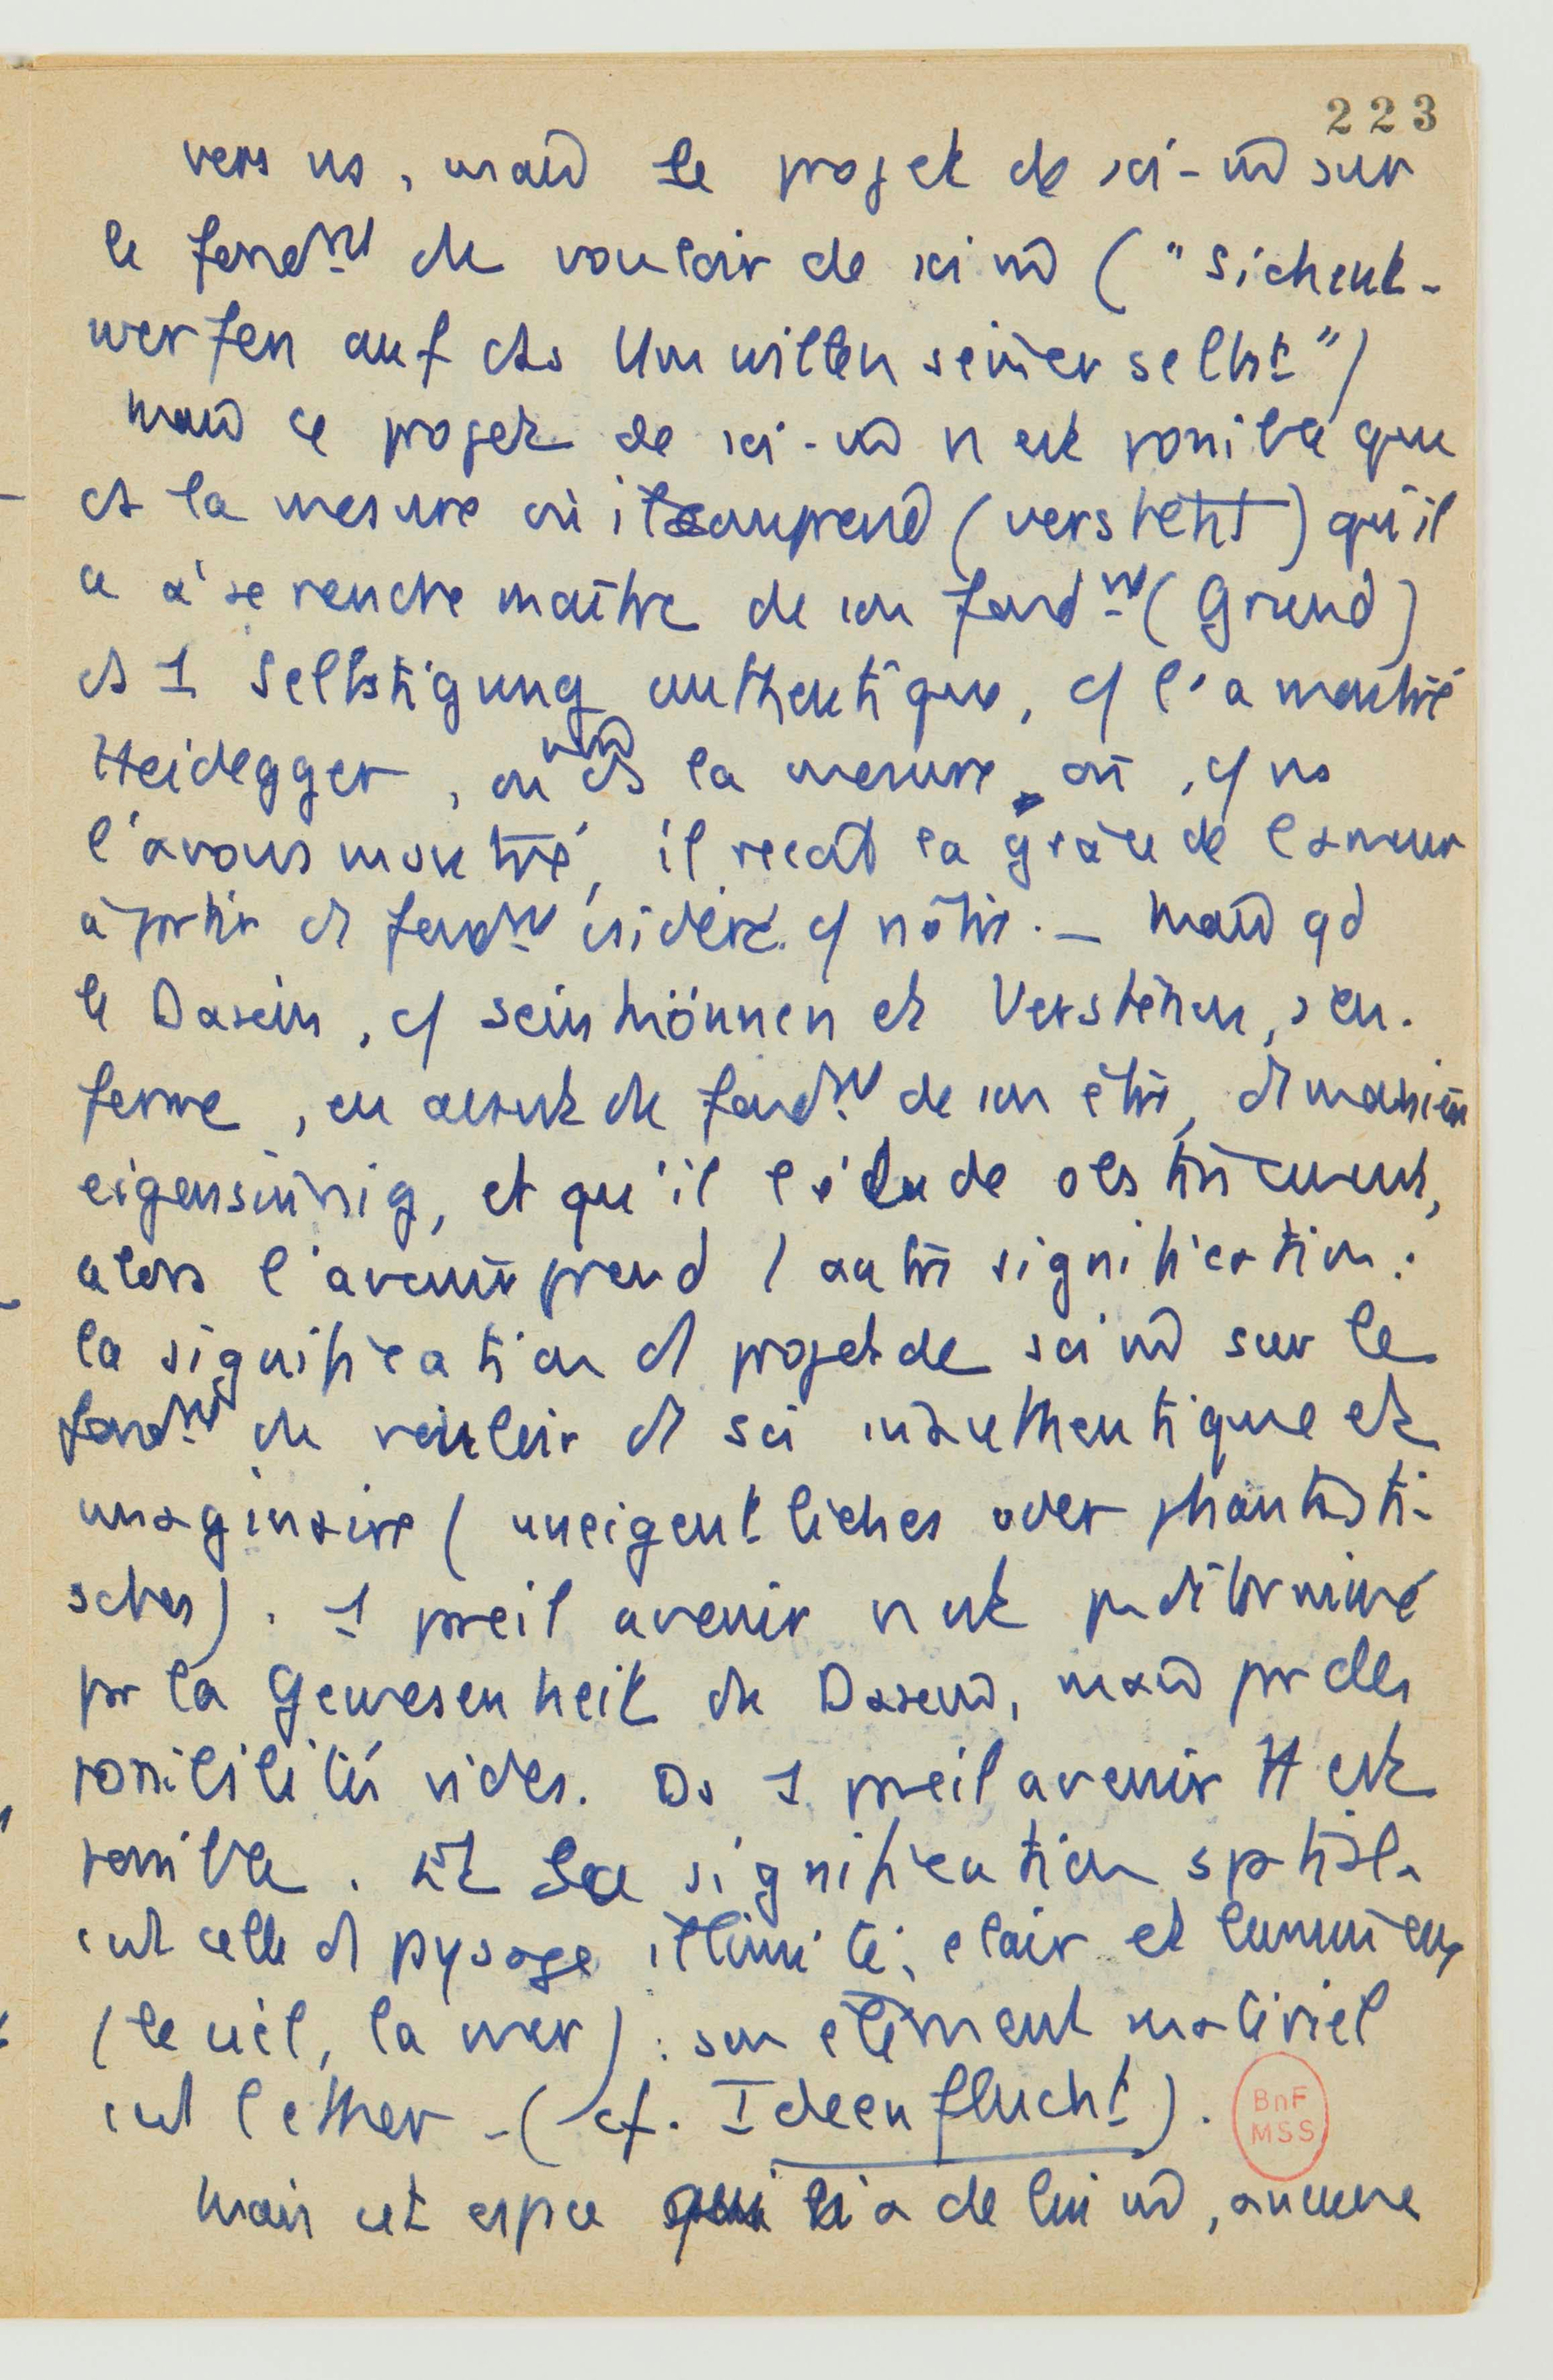 223
vers ns, mais le projet de soi-m̂ sur
le fondnt du vouloir de soi m̂ ("Sichent-
werfen auf ds Umwillen seiner selbst")
Mais ce projet de soi-m̂ n'est possible que
ds la mesure où il comprend (versteht) qu'il
a à se rendre maître de son fondnt (Grund)
ds 1 Selbstigung authentique, c/ l'a montré
Heidegger, ou m̂ ds la mesure où, c/ ns
l'avons montré, il reçoit la grâce de l'amour
à partir d fondnt considéré c/ nôtre. — Mais qd
le Dasein, c/ seinkönnen et Verstehen, s'en-
ferme, en avant du fondnt de son être, d manière
eigensinnig, et qu'il l'élude obstinément,
alors l'avenir prend 1 autre signification :
la signification d projet de soi m̂ sur le
fondnt du vouloir d soi inauthentique et
imaginaire (uneigentliches oder phantasti-
sches). 1 pareil avenir n'est p déterminé
pr la Gewesenheit du Dasein, mais pr des
possibilités vides. Ds 1 pareil avenir tt est
possible. Et sa signification spatiale
est celle d paysage illimité, clair et lumineux
(le ciel, la mer) : son élément matériel
est l'ether - (cf. Ideenflucht).
BnF
MSS
Mais cet espace qui lia de lui m̂, aucune